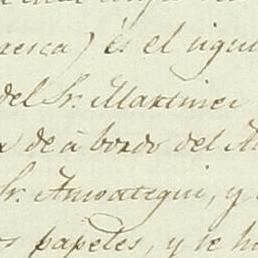 resca) és el sigui
del Sr. Martinez
de á bordo del M
Sr. Amoategui, y
s papeles, y le h